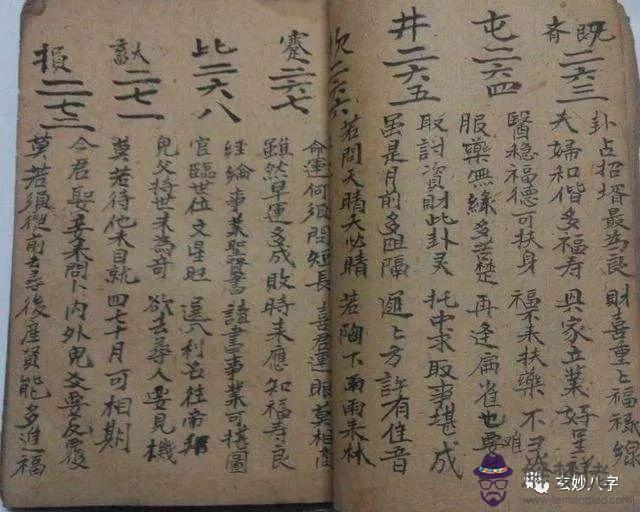 既
二六三
卦占招壻最為良 財喜重重福祿綿
夫婦和偕多福壽 興家立業好呈祥
屯二六四
醫穩福德可扶身 福不來扶藥不灵
服藥無緣多苦楚 再逢扁省也難
井二六五
取討資財此卦灵 托中求取事堪成
虽是月前多阻隔 迴上方許有佳音
二六六
若問天晴天必晴 若陶下雨雨來林
蹇二六七
命運何須問短長 喜君運眼莫相
雖然早運多成敗 時來應知福壽良
比二六八
經綸事業聖賢書 讀書事業可橫圖
官臨世位文星旺 選入利名往帝
二七一
兒父持世未為奇 欲去尋人要見機
莫若待他來自就 四七十月可相期
損二七二
今君娶妻來問卜 內外兒父要反覆
莫若須從前去尋 後產賢能多進福
玄妙八字